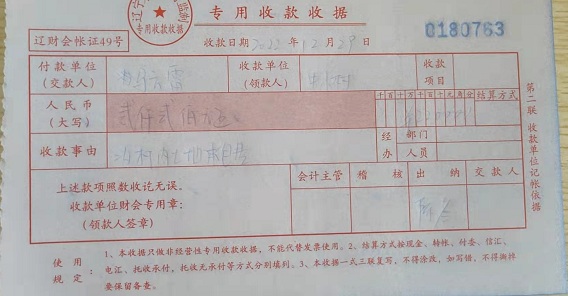 专用收款收据
专用收款收据
辽财会帐证49号
收款日期2022年12月29日
0180763
付款单位(交款人)
收款单位(领款人)
收款项目
人民币(大写)
贰仟贰佰元
千百十万千百十元角分
结算方式
收款事由
经办
部门
人员
上述款项照数收讫无误。
收款单位财会专用章:
(领款人签章)
会计主管
稽核
出纳
交款人
第二联 收款单位记帐依据
使用规定:
1、本收据只做非经营性专用收款收据,不能代替发票使用。2、结算方式按现金、转帐、付委、信汇、
电汇、托收承付,托收无承付等方式分别填列。3、本收据一式三联复写,不得涂改,如写错,不得撕掉
要保留备查。